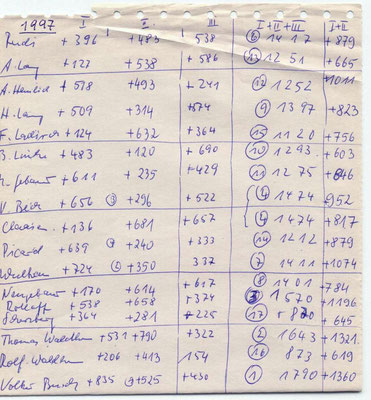 1997 I II III I+II+III I+II
Rudi +396 +483 538 6 1417 +879
A. Lang +127 +538 +586 13 1251 +665
A. +518 +493 +241 12 1252 +1011
H. Lang +509 +314 +574 9 1397 +823
F. +124 +632 +364 15 1120 +756
B. Linke +483 +120 +690 10 1293 +603
+611 +235 +429 11 1275 +846
V. Beer +656 3 +296 +522 4 1474 +952
+136 +681 +657 4 1474 +817
Picard +639 +240 +333 14 1212 +879
+724 2 +350 337 7 1411 +1074
Neugebauer +170 +614 +617 8 1401 +784
+538 +658 +374 3 1570 +1196
+364 +281 +225 17 +870 +645
Thomas +531 +790 +322 2 1643 +1321
Rolf +206 +413 154 16 873 +619
Volker +835 +525 +430 1 1790 +1360